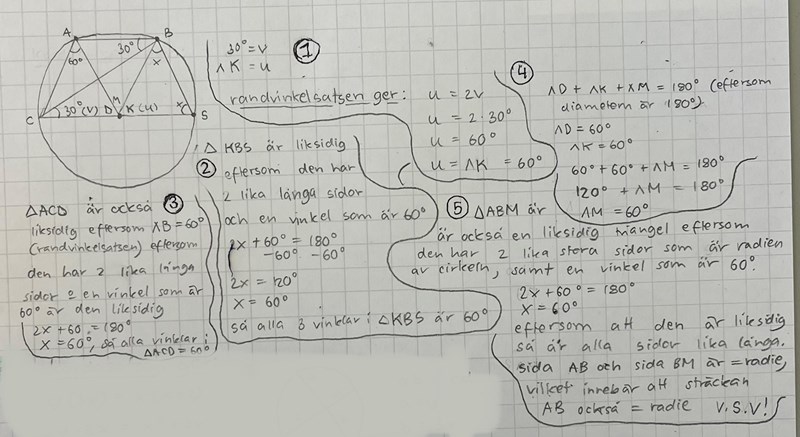 A
B
60°
30°
x
30° (V)
D
M
K (u)
x
C
S
①
30° = V
∧K = u
randvinkelsatsen ger:
u = 2V
u = 2 · 30°
u = 60°
u = ∧K = 60°
②
△ KBS är liksidig
eftersom den har
2 lika långa sidor
och en vinkel som är 60°
2x + 60° = 180°
-60° -60°
2x = 120°
x = 60°
så alla 3 vinklar i △KBS är 60°
③
△ACD är också
liksidig eftersom ∧B = 60°
(randvinkelsatsen) eftersom
den har 2 lika långa
sidor o en vinkel som är
60° är den liksidig
2x + 60 = 180°
x = 60°, så alla vinklar i
△ACD = 60°
④
∧D + ∧K + ∧M = 180° (eftersom
diametern är 180°)
∧D = 60°
∧K = 60°
60° + 60° + ∧M = 180°
120° + ∧M = 180°
∧M = 60°
⑤
△ABM är
är också en liksidig triangel eftersom
den har 2 lika stora sidor som är radien
av cirkeln, samt en vinkel som är 60°.
2x + 60° = 180°
x = 60°
eftersom att den är liksidig
så är alla sidor lika långa.
sida AB och sida BM är = radie,
vilket innebär att sträckan
AB också = radie V.S.V!